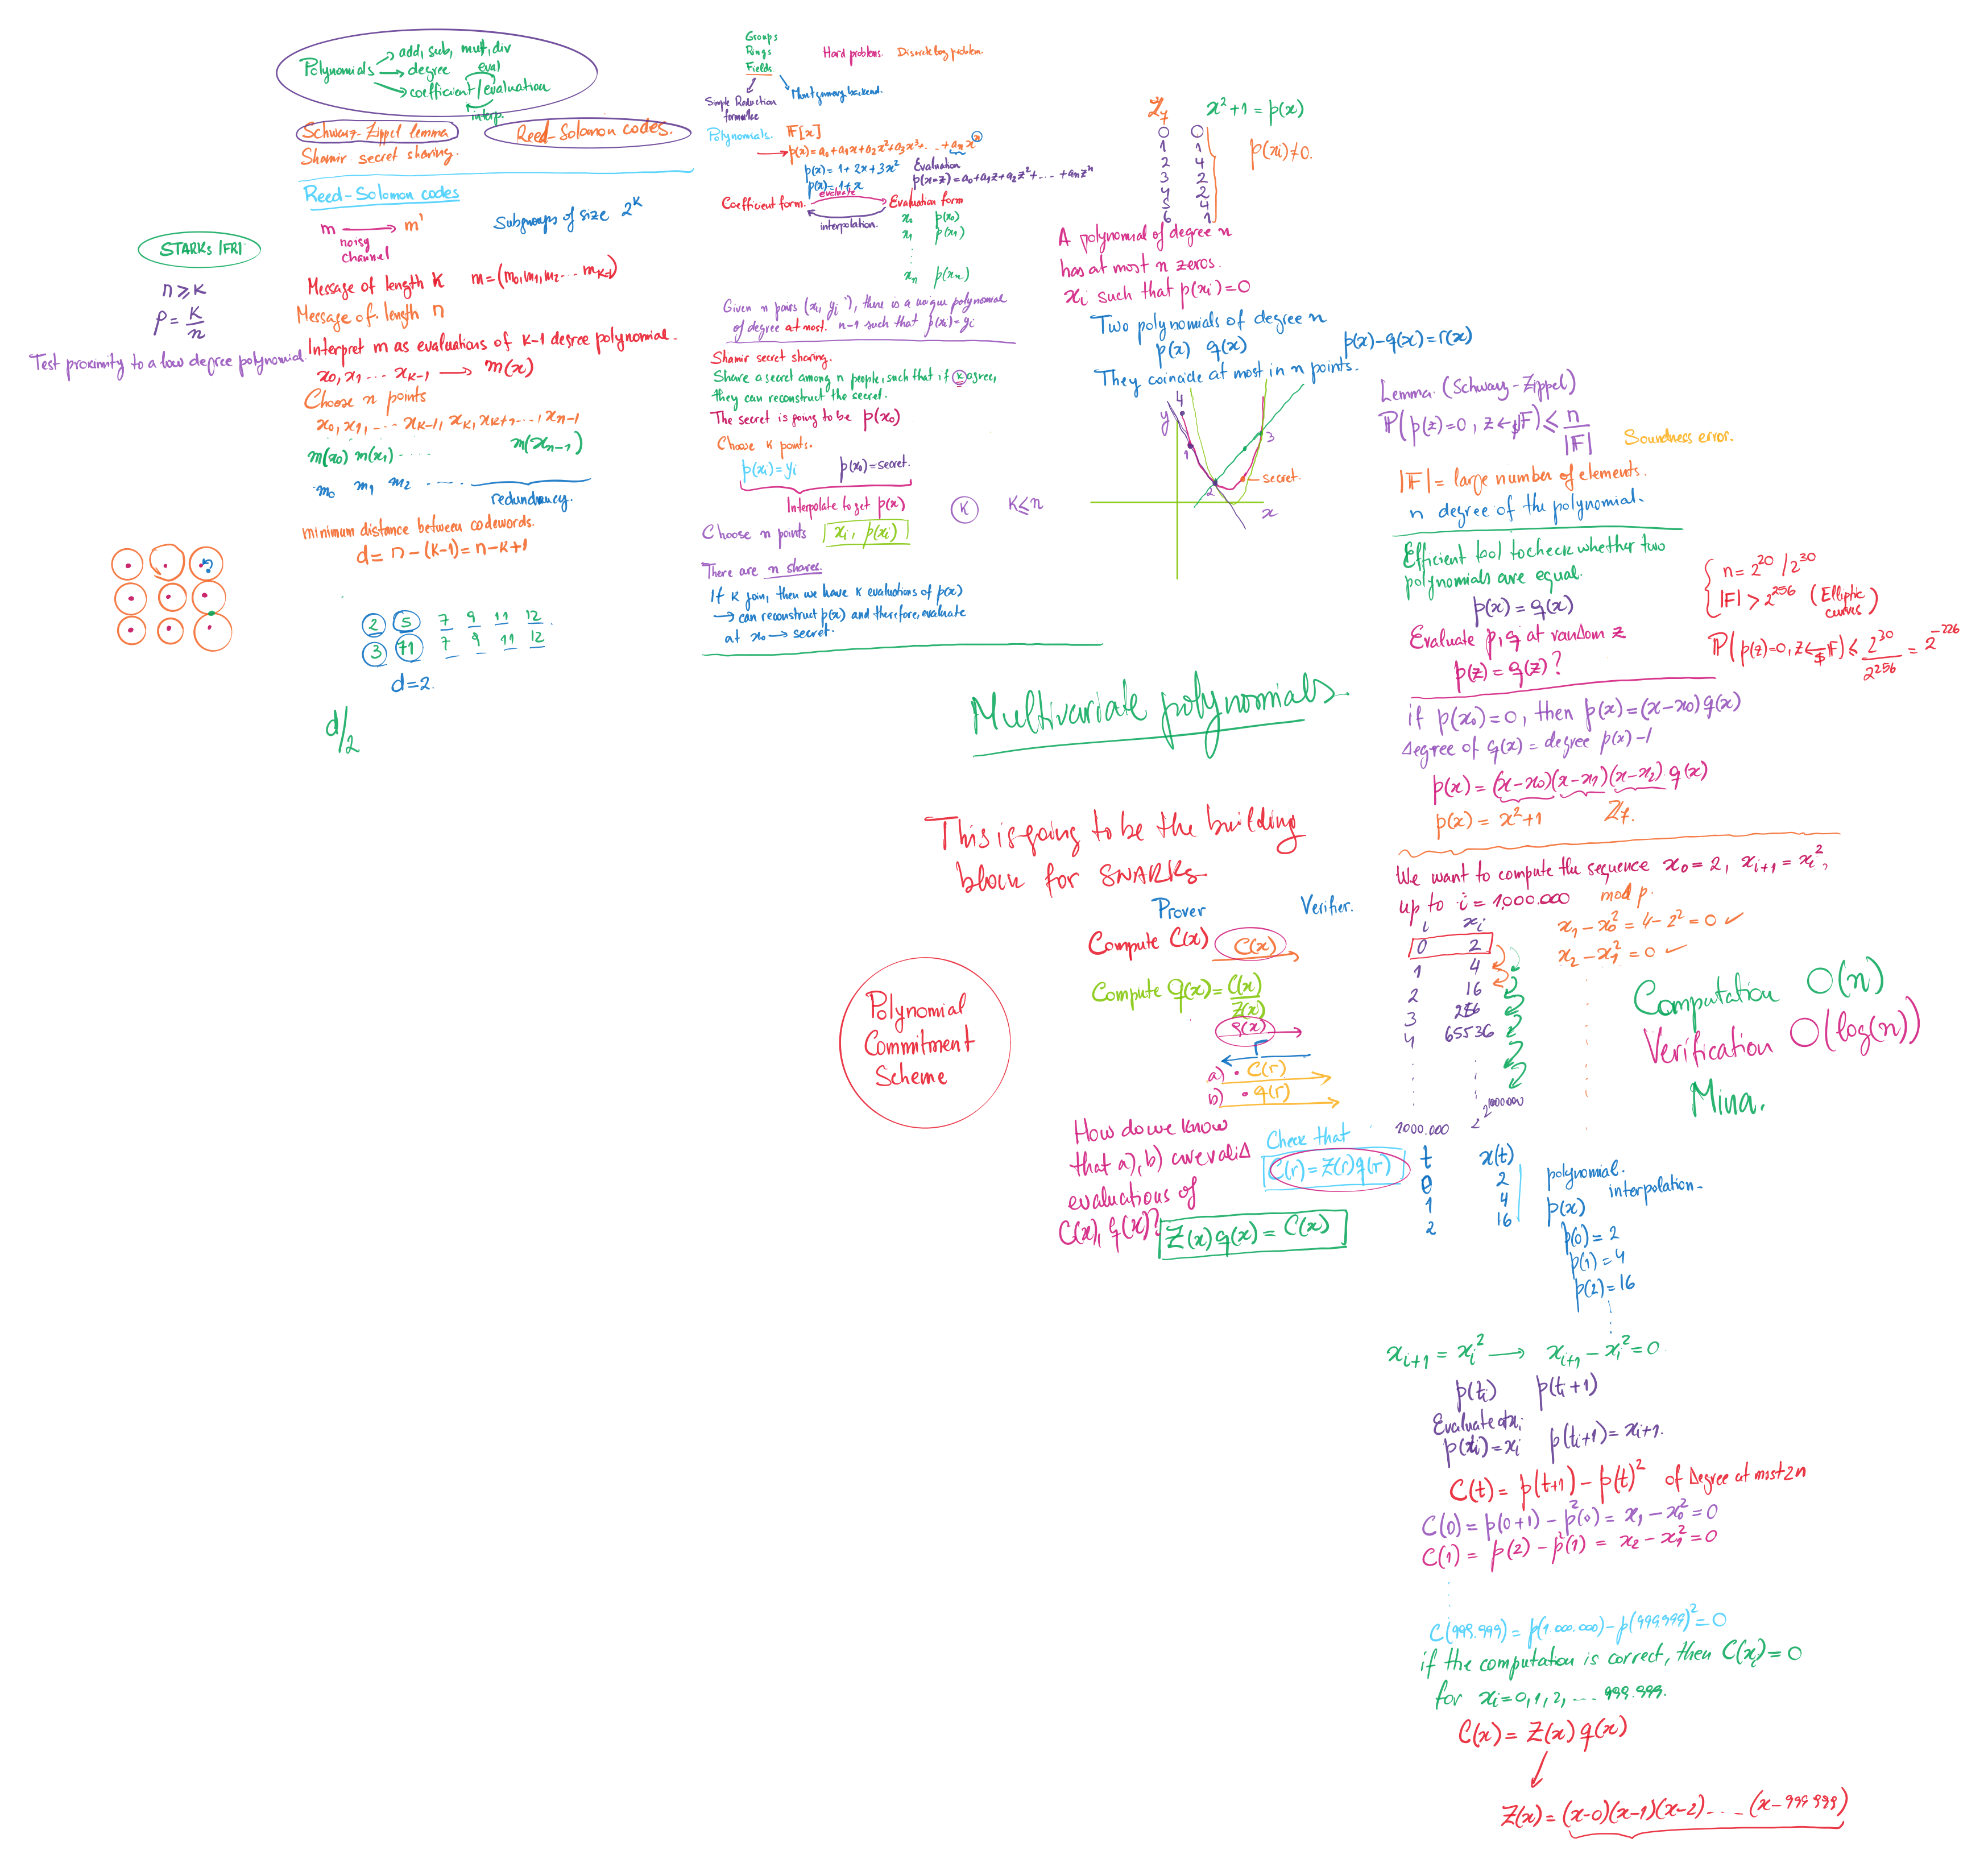 Polynomials → add, sub, mult, div
→ degree eval
→ coefficient / evaluation
interp.
Schwarz-Zippel lemma
Reed-Solomon codes.
Shamir secret sharing.
Reed-Solomon codes
m → m'
noisy
channel
Subgroups of size 2^K
Message of length K m=(m0, m1, m2 ... mK-1)
Message of length n
Interpret m as evaluations of K-1 degree polynomial.
x0, x1 ... xK-1 → m(x)
Choose n points
x0, x1, ... xK-1, xK, xK+1 ..., xn-1
m(x0) m(x1) ..... m(xn-1)
m0 m1 m2 .....
redundancy.
minimum distance between codewords.
d = n-(K-1) = n-K+1
2 5 7 9 11 12
3 71 7 9 11 12
d=2.
d/2
STARKs | FRI
n ≥ K
ρ = K/n
Test proximity to a low degree polynomial
Groups
Rings
Fields
Hard problems. Discrete log problem.
Simple Reduction
Montgomery backend.
Polynomials. 𝔽[x]
→ p(x) = a0 + a1x + a2x² + a3x³ + ... + anx^n
p(x) = 1 + 2x + 3x²
p(x) = 1 + x
Evaluation
p(x=z) = a0 + a1z + a2z² + ... + anz^n
Coefficient form. evaluate Evaluation form
interpolation.
x0 p(x0)
x1 p(x1)
⋮
xn p(xn)
Given n pairs (xi, yi), there is a unique polynomial
of degree at most n-1 such that p(xi)=yi
Shamir secret sharing.
Share a secret among n people, such that if K agree,
they can reconstruct the secret.
The secret is going to be p(x0)
Choose K points.
p(xi)=yi p(x0)=secret.
Interpolate to get p(x)
K K≤n
Choose n points xi, p(xi)
There are n shares.
If K join, then we have K evaluations of p(x)
→ can reconstruct p(x) and therefore, evaluate
at x0 → secret.
ℤ7 x²+1 = p(x)
0 0
1 1
2 4
3 2
4 2
5 4
6 1
p(xi)≠0.
A polynomial of degree n
has at most n zeros.
xi such that p(xi)=0
Two polynomials of degree n
p(x) q(x)
p(x)-q(x)=r(x)
They coincide at most in n points.
4
y
1
2
3
secret.
x
Lemma (Schwarz-Zippel)
ℙ(p(z)=0, z ←$ 𝔽) ≤ n/|𝔽|
Soundness error.
|𝔽| = large number of elements.
n degree of the polynomial.
Efficient tool to check whether two
polynomials are equal.
p(x) = q(x)
Evaluate p, q at random z
p(z) = q(z)?
n = 2^20 / 2^30
|𝔽| > 2^256 (Elliptic
curves)
ℙ(p(z)=0, z ←$ 𝔽) ≤ 2^30/2^256 = 2^-226
if p(x0)=0, then p(x)=(x-x0)q(x)
degree of q(x) = degree p(x)-1
p(x) = (x-x0)(x-x1)(x-x2) q(x)
p(x) = x²+1 ℤ7.
Multivariate polynomials
This is going to be the building
block for SNARKs
Prover Verifier.
Compute C(x) C(x)
Compute q(x) = C(x)/Z(x)
q(x)
r
a) • C(r)
b) • q(r)
How do we know
that a), b) are valid
evaluations of
C(x), q(x)?
Check that
C(r) = Z(r)q(r)
Z(x)q(x) = C(x)
Polynomial
Commitment
Scheme
We want to compute the sequence x0=2, xi+1=xi²,
up to i = 1,000.000 mod p.
i xi
0 2
1 4
2 16
3 256
4 65536
2^1000000
1000.000 2
x1 - x0² = 4-2² = 0 ✓
x2 - x1² = 0 ✓
Computation O(n)
Verification O(log(n))
Mina.
t x(t)
0 2
1 4
2 16
polynomial.
interpolation
p(x)
p(0) = 2
p(1) = 4
p(2) = 16
xi+1 = xi² → xi+1 - xi² = 0
p(ti) p(ti+1)
Evaluate at xi
p(xi)=xi p(ti+1)=xi+1.
C(t) = p(t+1) - p(t)² of degree at most 2n
C(0) = p(0+1) - p²(0) = x1 - x0² = 0
C(1) = p(2) - p²(1) = x2 - x1² = 0
C(999.999) = p(1.000.000) - p(999.999)² = 0
if the computation is correct, then C(xi)=0
for xi=0,1,2, ... 999.999.
C(x) = Z(x) q(x)
Z(x) = (x-0)(x-1)(x-2) .... (x-999999)